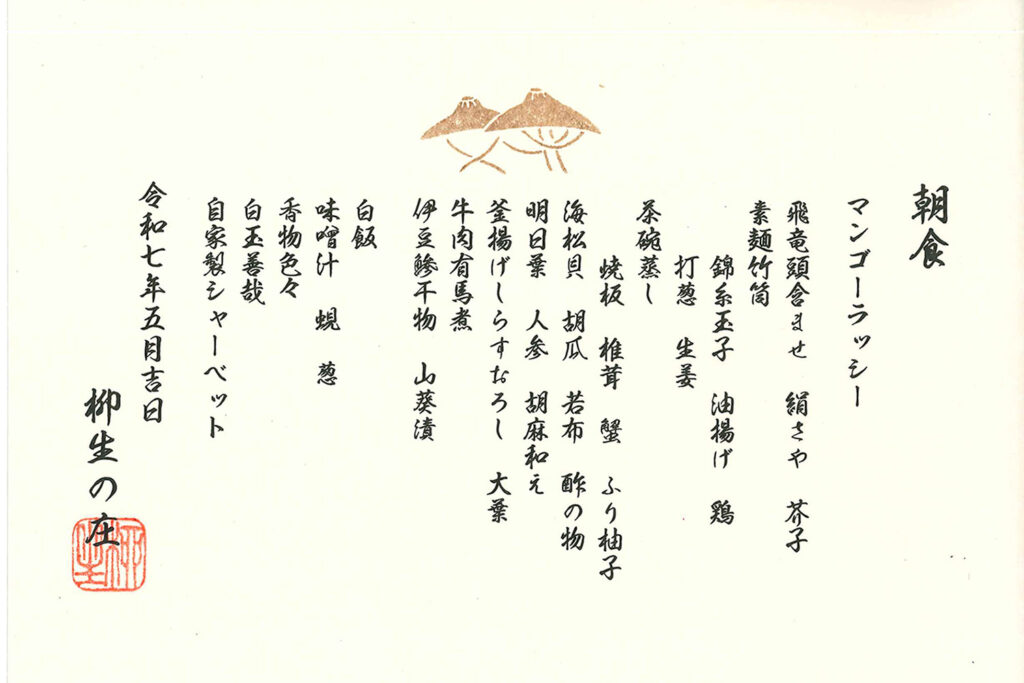 朝食
マンゴーラッシー
飛竜頭含ませ 絹さや 芥子
素麺竹筒
錦糸玉子 油揚げ 鶏
打葱 生姜
茶碗蒸し
焼板 椎茸 蟹 ふり柚子
海松貝 胡瓜 若布 酢の物
明日葉 人参 胡麻和え
釜揚げしらすおろし 大葉
牛肉有馬煮
伊豆鯵干物 山葵漬
白飯
味噌汁 蜆 葱
香物色々
白玉善哉
自家製シャーベット
令和七年五月吉日
柳生の庄
柳生